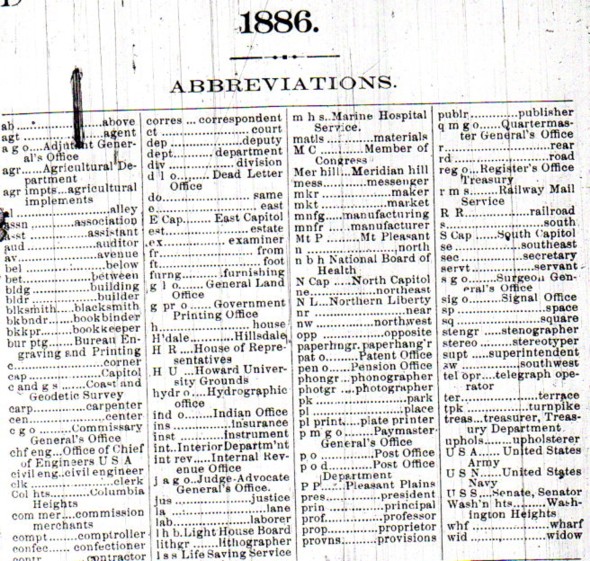 1886.
ABBREVIATIONS.
ab......above
agt......agent
a g o....Adjutant Gener-
al's Office
agr......Agricultural De-
partment
agr impts...agricultural
implements
al......alley
assn......association
asst......assistant
aud......auditor
av......avenue
bel......below
bet......between
bldg......building
bldr......builder
blksmith......blacksmith
bkbndr......bookbinder
bkkpr......bookkeeper
bur ptg......Bureau En-
graving and Printing
c......corner
cap......Capitol
c and g s......Coast and
Geodetic Survey
carp......carpenter
cen......center
c g o......Commissary
General's Office
chf eng...Office of Chief
of Engineers U S A
civil eng..civil engineer
clk......clerk
Col hts......Columbia
Heights
com mer...commission
merchants
compt......comptroller
confec......confectioner
contr......contractor
corres ... correspondent
ct......court
dep......deputy
dept......department
div......division
d l o......Dead Letter
Office
do......same
e......east
E Cap......East Capitol
est......estate
ex......examiner
fr......from
ft......foot
furng......furnishing
g l o......General Land
Office
g pr o......Government
Printing Office
h......house
H'dale......Hillsdale
H R....House of Repre-
sentatives
H U ...Howard Univer-
sity Grounds
hydr o....Hydrographic
office
ind o......Indian Office
ins......insurance
inst......instrument
int..Interior Departm'nt
int rev....Internal Rev-
enue Office
j a g o..Judge-Advocate
General's Office.
jus......justice
la......lane
lab......laborer
l h b.Light House Board
lithgr......lithographer
l s s Life Saving Service
m h s..Marine Hospital
Service.
matls......materials
M C......Member of
Congress
Mer hill...Meridian hill
mess......messenger
mkr......maker
mkt......market
mnfg......manufacturing
mnfr......manufacturer
Mt P......Mt Pleasant
n......north
n b h National Board of
Health
N Cap......North Capitol
ne......northeast
N L...Northern Liberty
nr......near
nw......northwest
opp......opposite
paperhngr.paperhang'r
pat o......Patent Office
pen o......Pension Office
phongr...phonographer
photgr...photographer
pk......park
pl......place
pl print.....plate printer
p m g o......Paymaster
General's Office
p o......Post Office
p o d......Post Office
Department
P P......Pleasant Plains
pres......president
prin......principal
prof......professor
prop......proprietor
provns......provisions
publr......publisher
q m g o......Quartermas-
ter General's Office
r......rear
rd......road
reg o...Register's Office
Treasury
r m s......Railway Mail
Service
R R......railroad
s......south
S Cap......South Capitol
se......southeast
sec......secretary
servt......servant
s g o......Surgeon Gen-
eral's Office
sig o......Signal Office
sp......space
sq......square
stengr ......stenographer
stereo......stereotyper
supt......superintendent
sw......southwest
tel opr...telegraph ope-
rator
ter......terrace
tpk......turnpike
treas...treasurer, Treas-
ury Department
uphols......upholsterer
U S A......United States
Army
U S N......United States
Navy
U S S....Senate, Senator
Wash'n hts......Wash-
ington Heights
whf......wharf
wid......widow